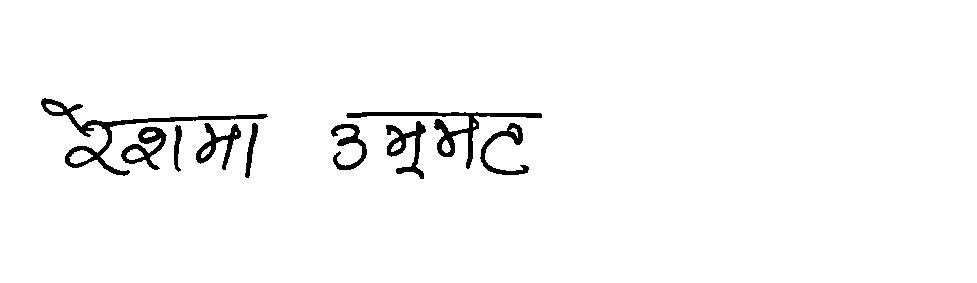 रेशमा उम्मट